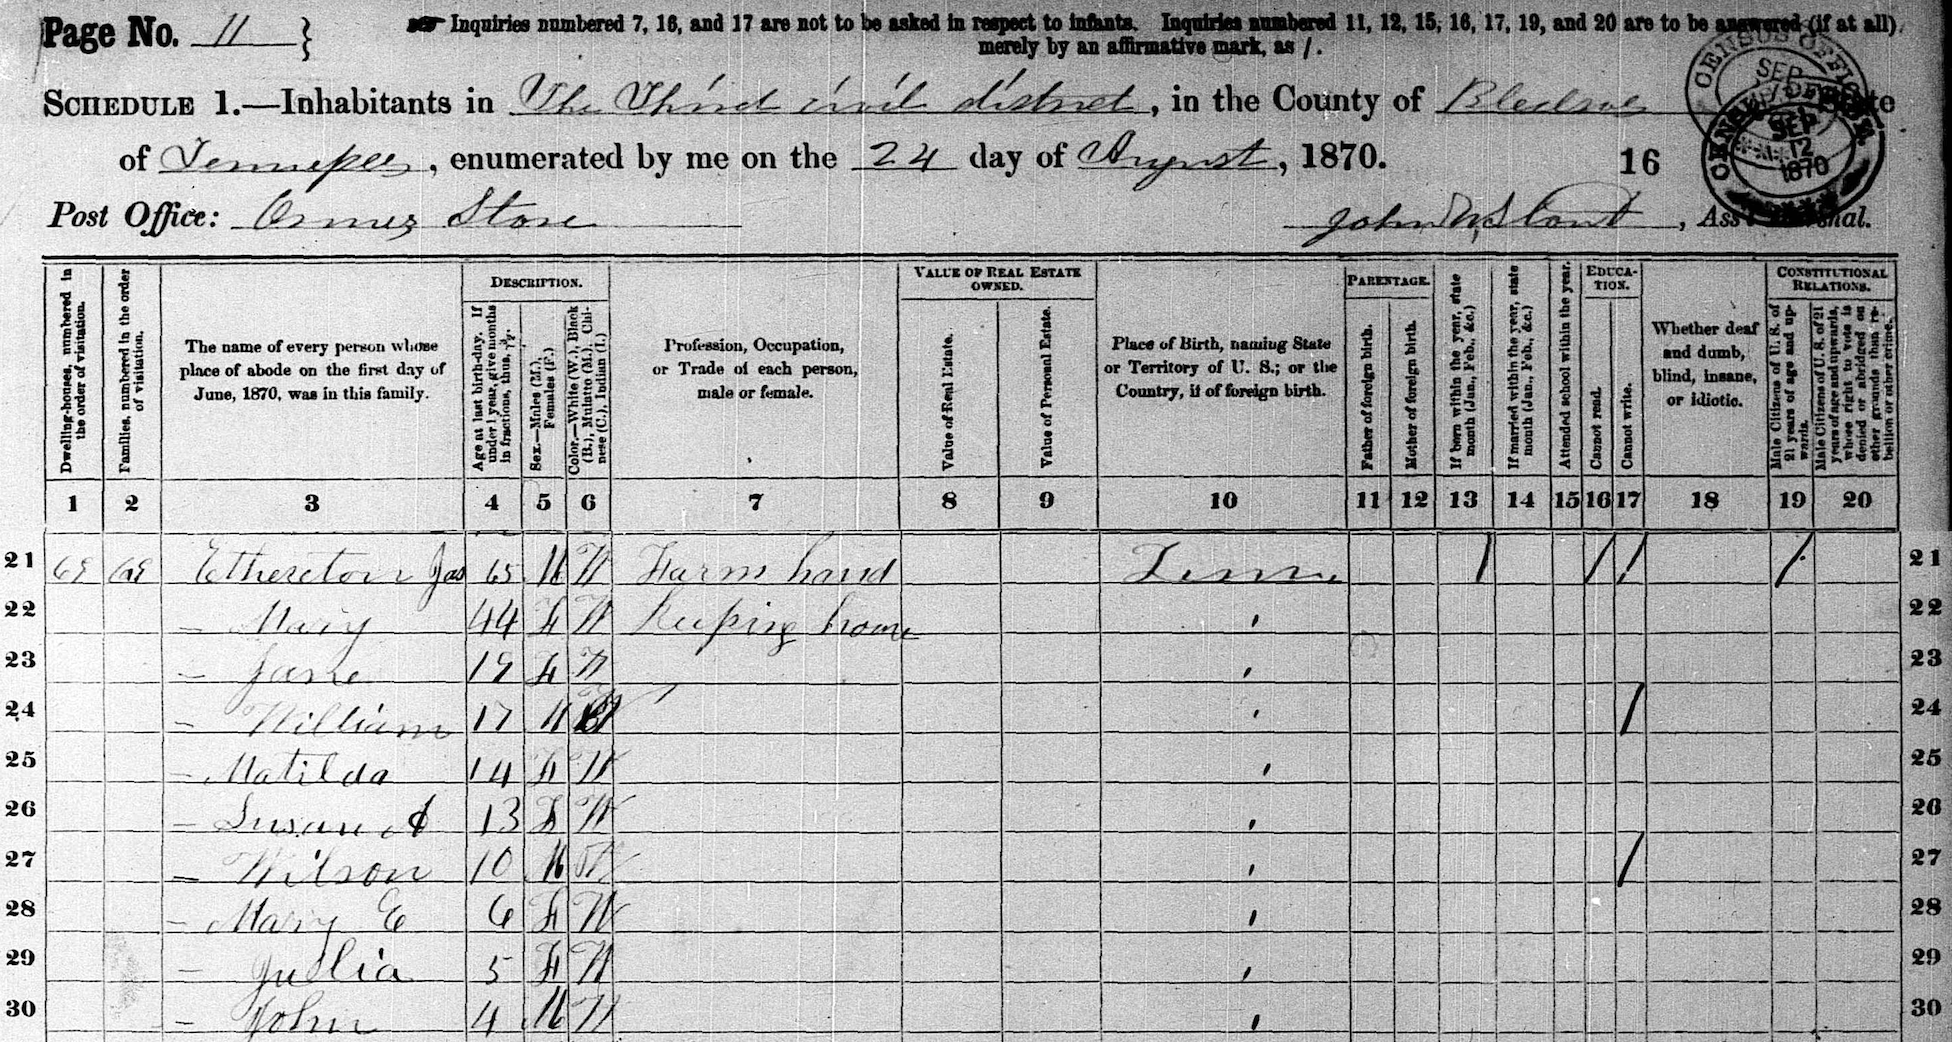 Page No. 11 }
Inquiries numbered 7, 16, and 17 are not to be asked in respect to infants. Inquiries numbered 11, 12, 15, 16, 17, 19, and 20 are to be answered (if at all)
merely by an affirmative mark, as /.
SCHEDULE 1.—Inhabitants in The Third civil district, in the County of Bledsoe, State
of Tennessee, enumerated by me on the 24 day of August, 1870. 16
Post Office: Ormes Store
John W, Ass't Marshal.
CENSUS OFFICE SEP 12 1870
Dwelling-houses, numbered in the order of visitation.
Families, numbered in the order of visitation.
The name of every person whose place of abode on the first day of June, 1870, was in this family.
DESCRIPTION.
Age at last birth-day. If under 1 year, give months in fractions, thus, 3/12.
Sex.—Males (M.), Females (F.)
Color.—White (W.), Black (B.), Mulatto (M.), Chinese (C.), Indian (I.)
Profession, Occupation, or Trade of each person, male or female.
VALUE OF REAL ESTATE OWNED.
Value of Real Estate.
Value of Personal Estate.
Place of Birth, naming State or Territory of U. S.; or the Country, if of foreign birth.
PARENTAGE.
Father of foreign birth.
Mother of foreign birth.
If born within the year, state month (Jan., Feb., &c.)
If married within the year, state month (Jan., Feb., &c.)
Attended school within the year.
EDUCATION.
Cannot read.
Cannot write.
Whether deaf and dumb, blind, insane, or idiotic.
CONSTITUTIONAL RELATIONS.
Male Citizens of U. S. of 21 years of age and upwards.
Male Citizens of U. S. of 21 years of age and upwards, whose right to vote is denied or abridged on other grounds than rebellion or other crime.
1 2 3 4 5 6 7 8 9 10 11 12 13 14 15 16 17 18 19 20
21 69 69 Ethereton Jas 65 M W Farm hand Tenn / / / / 21
22 — Mary 44 F W Keeping home ' 22
23 — Jane 19 F W ' 23
24 — William 17 M W ' / 24
25 — Matilda 14 F W ' 25
26 — Susan A 13 F W ' 26
27 — Wilson 10 M W ' / 27
28 — Mary E 6 F W ' 28
29 — Jullia 5 F W ' 29
30 — John 4 M W ' 30